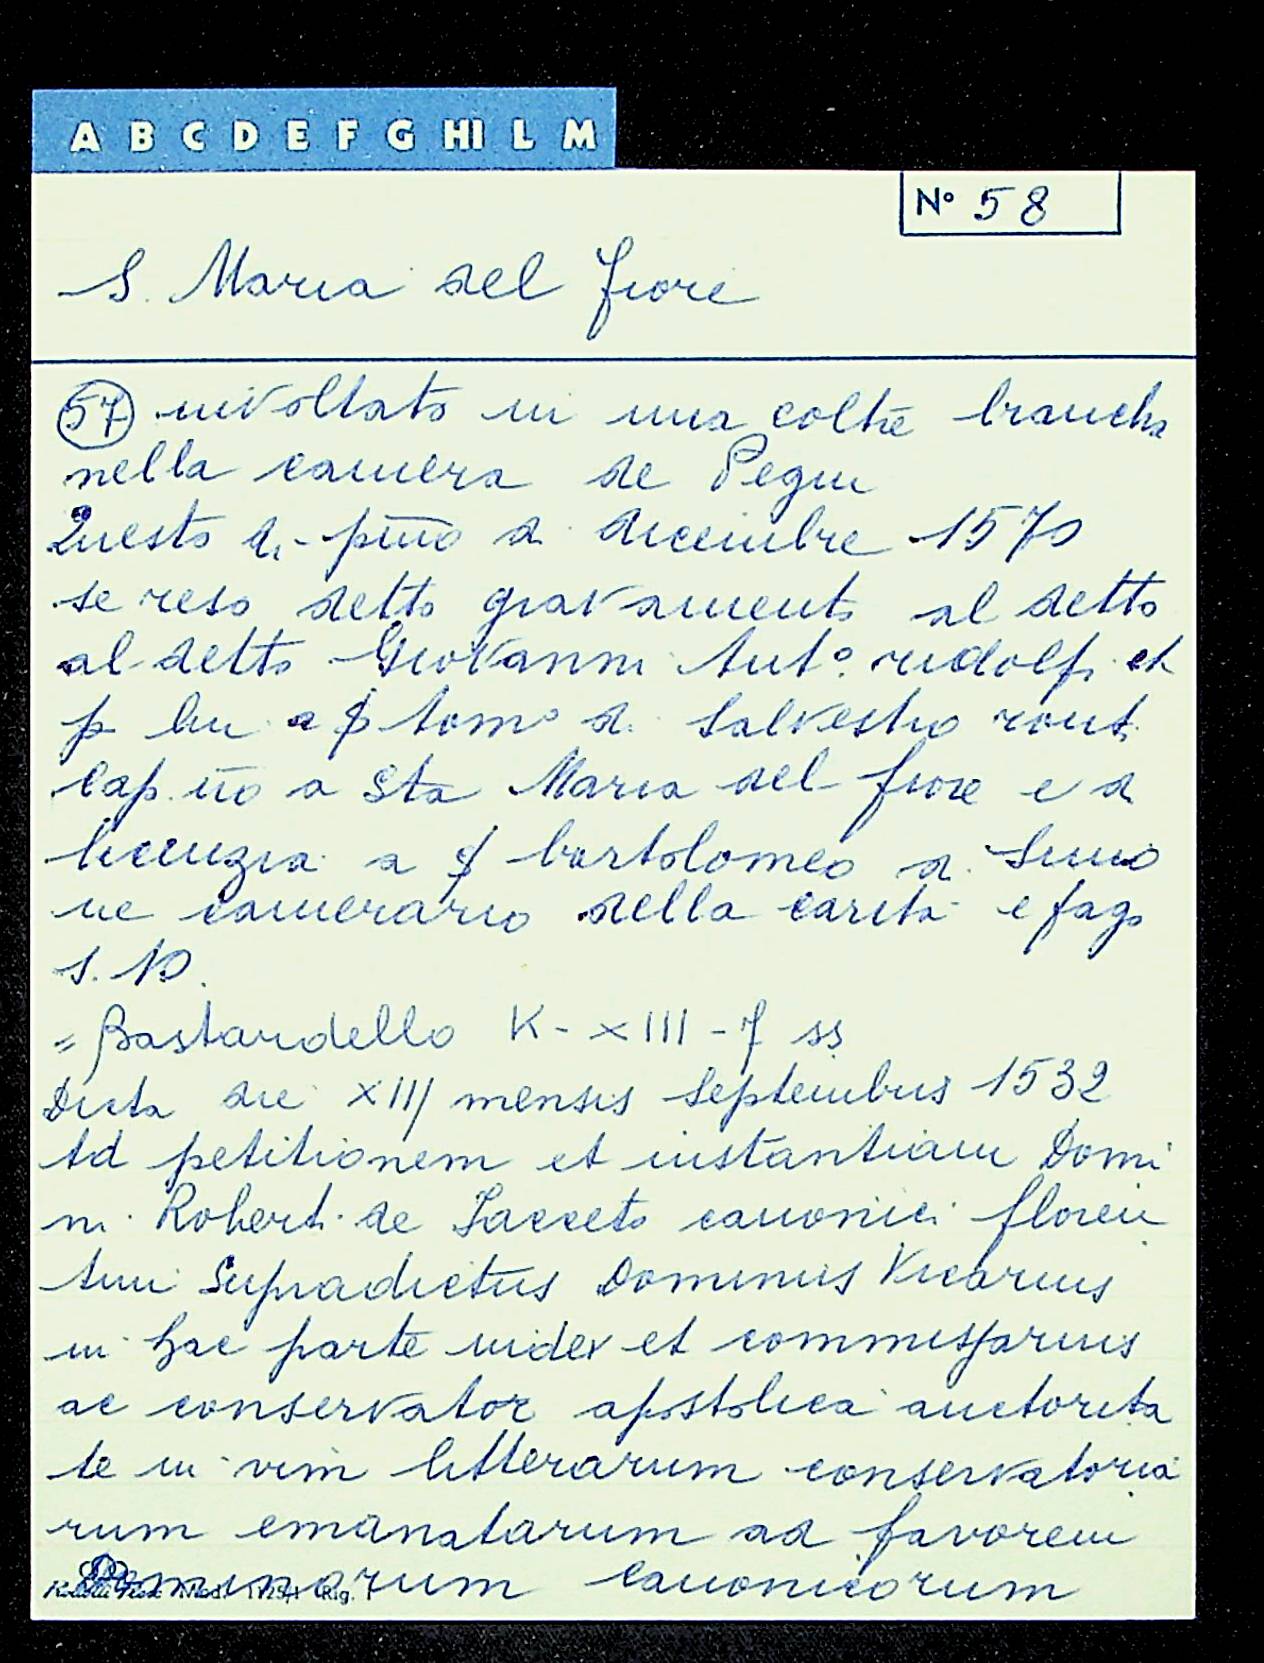 A B C D E F G HI L M
Nº 58
S. Maria del fiore
57 involtato in una coltre biancha
nella camera de Pegni
Questo di pīno di dicembre 1570
se reso detto gravamento al detto
al detto Giovanni Antº. ridolfi et
p lui a tomº di Salvestro
cap. no a Sta Maria del fiore e di
licenzia a bartolomeo di Simo
ne camerario della carita e fago
S. N.
= Bastardello K - XIII - 7 ss
Dicta die XIII mensis Septembris 1532
Ad petitionem et instantiam Domi
ni Roberti de Facceto canonici floren
tini Supradictus Dominus Vicarius
in hac parte iudex et commissarius
ac conservator apostolica auctorita
te in vim litterarum conservatoria
rum emanatarum ad favorem
Dominorum canonicorum
Mod. 1125/1 Rig. 1